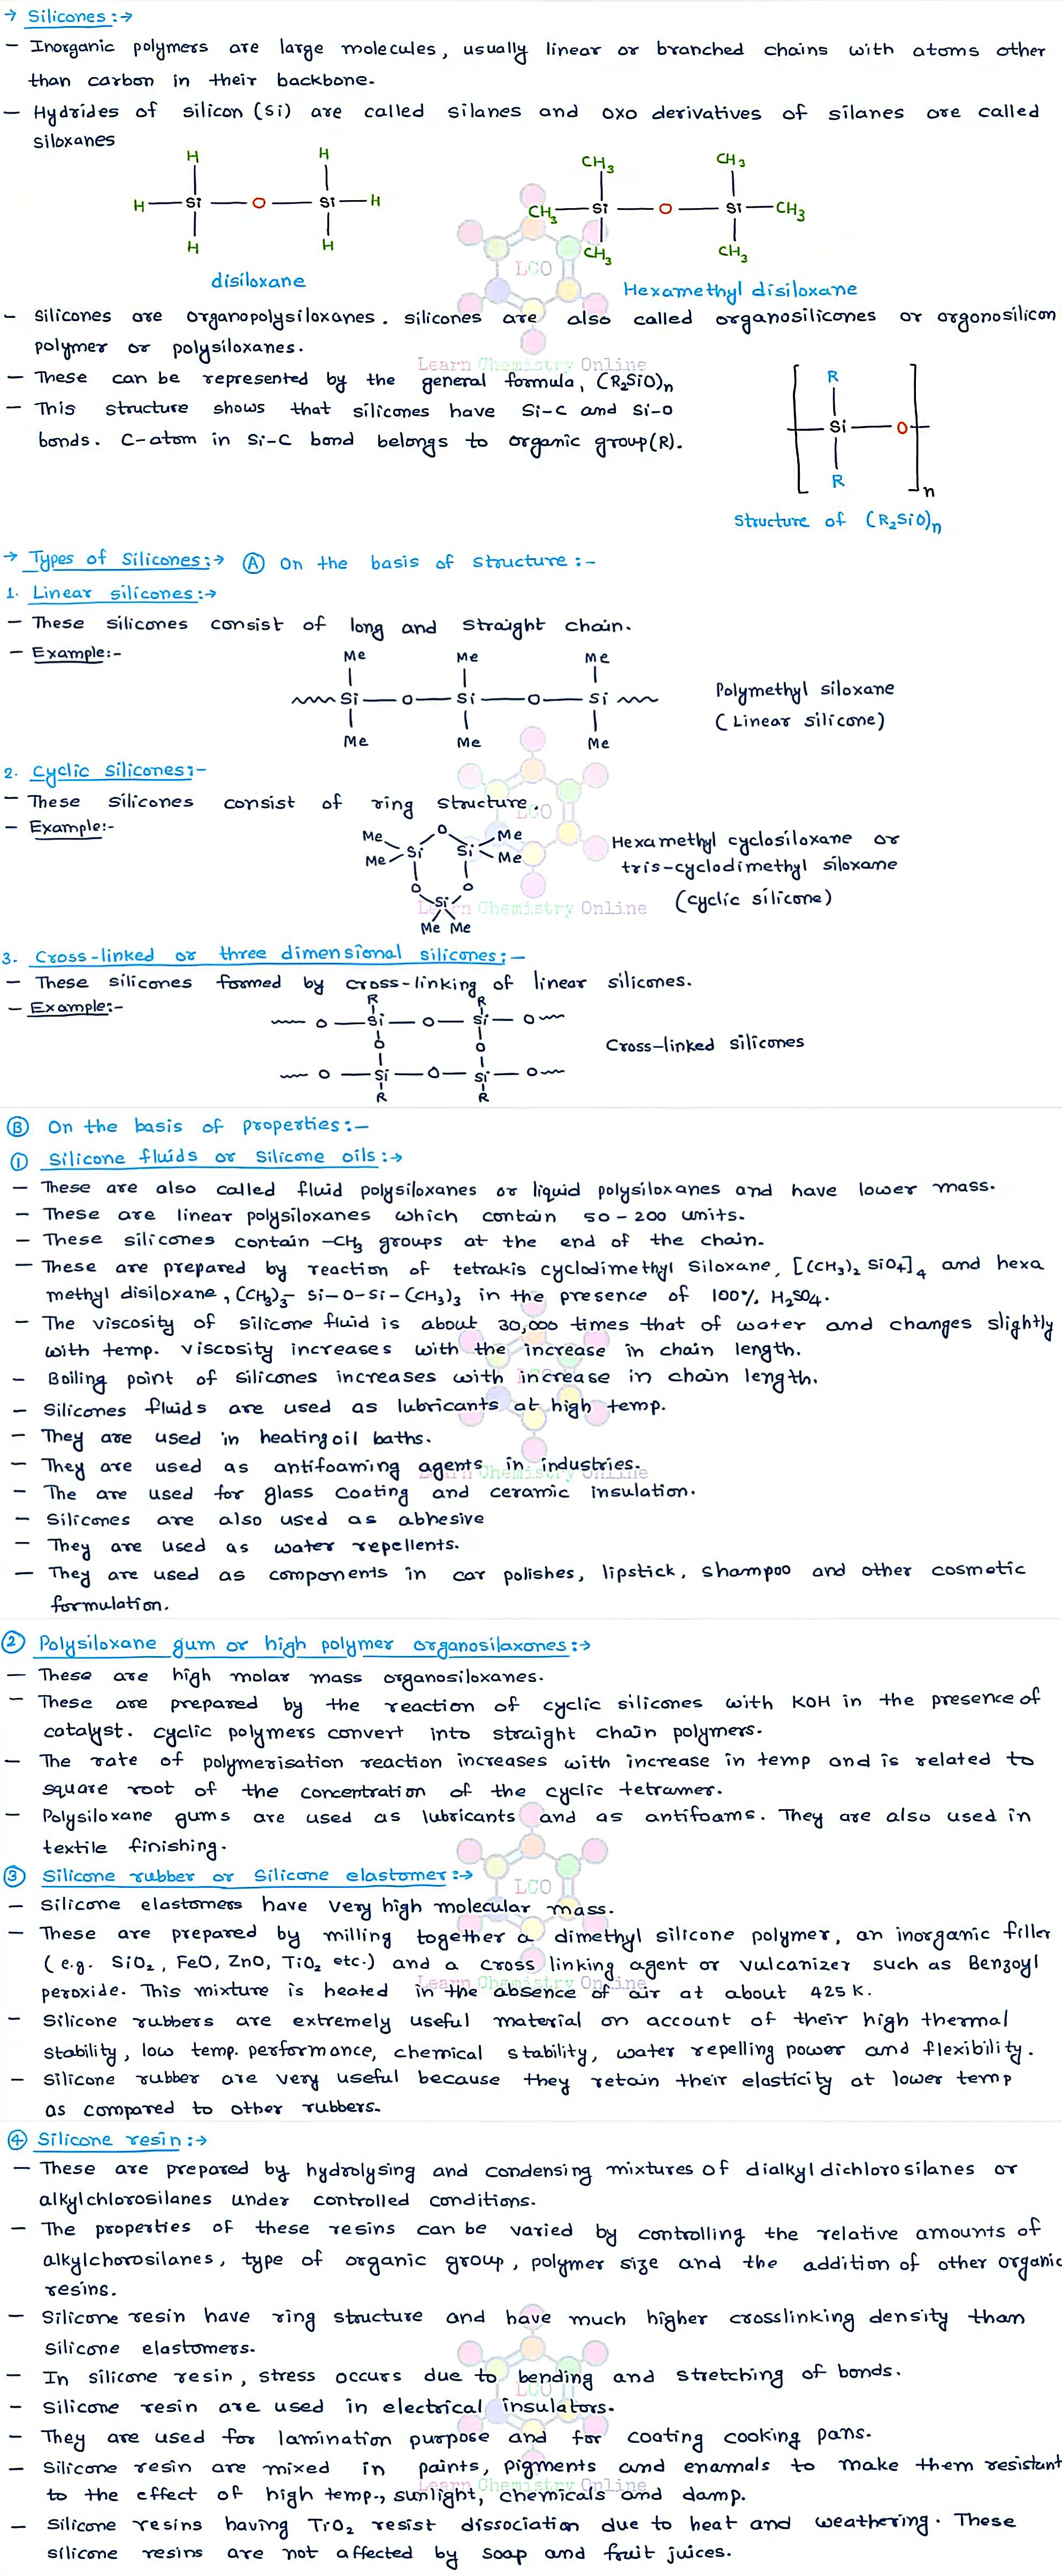 → Silicones :→
– Inorganic polymers are large molecules, usually linear or branched chains with atoms other
than carbon in their backbone.
– Hydrides of silicon (Si) are called silanes and oxo derivatives of silanes are called
siloxanes
H H
H — Si — O — Si — H
H H
disiloxane
CH3 CH3
CH3 — Si — O — Si — CH3
CH3 CH3
Hexamethyl disiloxane
LCO
Learn Chemistry Online
– Silicones are organopolysiloxanes. silicones are also called organosilicones or orgonosilicon
polymer or polysiloxanes.
– These can be represented by the general formula, (R2SiO)n
– This structure shows that silicones have Si-C and Si-O
bonds. C-atom in Si-C bond belongs to organic group(R).
R
Si — O
R
n
Structure of (R2SiO)n
→ Types of Silicones :→ Ⓐ On the basis of structure :-
1. Linear silicones :→
– These silicones consist of long and straight chain.
– Example:-
Me Me Me
Si — O — Si — O — Si
Me Me Me
Polymethyl siloxane
(Linear silicone)
2. Cyclic silicones :-
– These silicones consist of ring structure.
– Example:-
LCO
Me O Me
Me Si Si Me
O O
Si
Me Me
Hexamethyl cyclosiloxane or
tris-cyclodimethyl siloxane
(cyclic silicone)
Learn Chemistry Online
3. Cross-linked or three dimensional silicones :-
– These silicones formed by cross-linking of linear silicones.
– Example:-
R R
O — Si — O — Si — O
O O
O — Si — O — Si — O
R R
Cross-linked silicones
Ⓑ On the basis of properties :-
① Silicone fluids or Silicone oils :→
– These are also called fluid polysiloxanes or liquid polysiloxanes and have lower mass.
– These are linear polysiloxanes which contain 50 – 200 units.
– These silicones contain –CH3 groups at the end of the chain.
– These are prepared by reaction of tetrakis cyclodimethyl Siloxane, [(CH3)2 SiO4]4 and hexa
methyl disiloxane, (CH3)3– Si–O–Si–(CH3)3 in the presence of 100% H2SO4.
– The viscosity of silicone fluid is about 30,000 times that of water and changes slightly
with temp. viscosity increases with the increase in chain length.
– Boiling point of silicones increases with increase in chain length.
– Silicones fluids are used as lubricants at high temp.
– They are used in heating oil baths.
– They are used as antifoaming agents in industries.
Learn Chemistry Online
– The are used for glass coating and ceramic insulation.
– Silicones are also used as abhesive
– They are used as water repellents.
– They are used as components in car polishes, lipstick, shampoo and other cosmetic
formulation.
② Polysiloxane gum or high polymer organosilaxones :→
– These are high molar mass organosiloxanes.
– These are prepared by the reaction of cyclic silicones with KOH in the presence of
catalyst. cyclic polymers convert into straight chain polymers.
– The rate of polymerisation reaction increases with increase in temp and is related to
square root of the concentration of the cyclic tetramer.
– Polysiloxane gums are used as lubricants and as antifoams. They are also used in
textile finishing.
③ Silicone rubber or Silicone elastomer :→
LCO
– Silicone elastomers have very high molecular mass.
– These are prepared by milling together a dimethyl silicone polymer, an inorganic filler
(e.g. SiO2, FeO, ZnO, TiO2 etc.) and a cross linking agent or vulcanizer such as Benzoyl
Learn Chemistry Online
peroxide. This mixture is heated in the absence of air at about 425 K.
– Silicone rubbers are extremely useful material on account of their high thermal
stability, low temp. performance, chemical stability, water repelling power and flexibility.
– Silicone rubber are very useful because they retain their elasticity at lower temp
as compared to other rubbers.
④ Silicone resin :→
– These are prepared by hydrolysing and condensing mixtures of dialkyl dichlorosilanes or
alkylchlorosilanes under controlled conditions.
– The properties of these resins can be varied by controlling the relative amounts of
alkylchorosilanes, type of organic group, polymer size and the addition of other organic
resins.
– Silicone resin have ring structure and have much higher crosslinking density than
silicone elastomers.
– In silicone resin, stress occurs due to bending and stretching of bonds.
LCO
– Silicone resin are used in electrical insulators.
– They are used for lamination purpose and for coating cooking pans.
– Silicone resin are mixed in paints, pigments and enamals to make them resistant
Learn Chemistry Online
to the effect of high temp., sunlight, chemicals and damp.
– Silicone resins having TiO2 resist dissociation due to heat and weathering. These
silicone resins are not affected by soap and fruit juices.